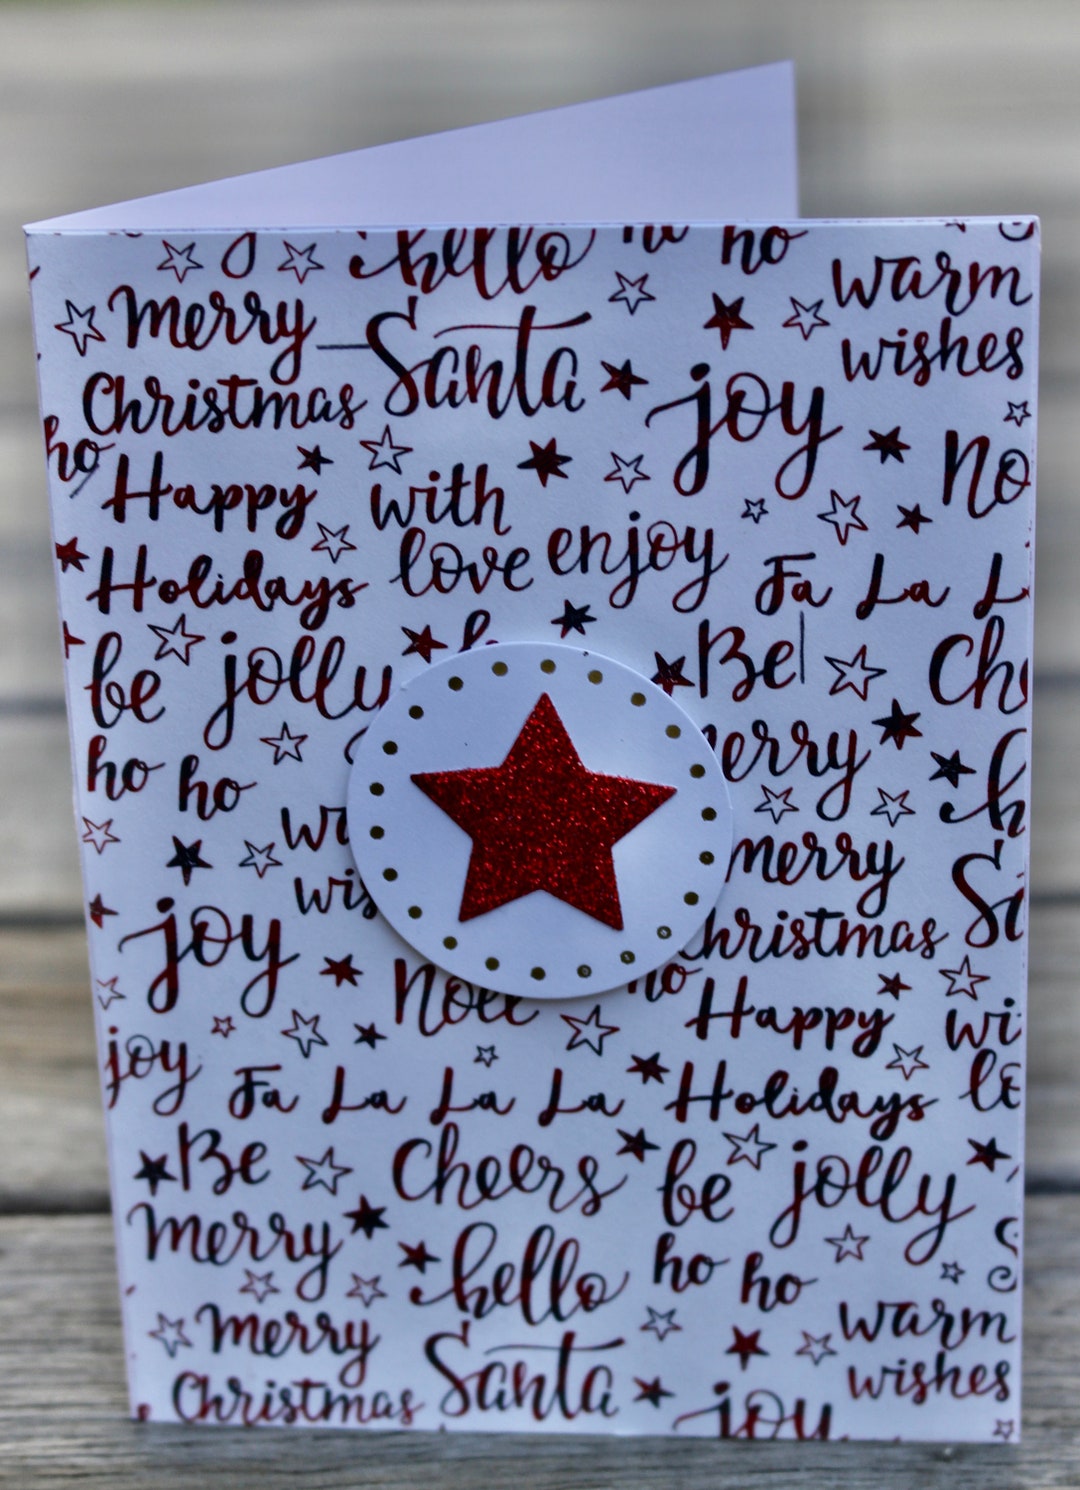 hello ho ho
warm
merry Santa wishes
Christmas joy
ho
Happy with No
Holidays love enjoy Fa La L
be jolly Be Ch
ho ho erry h
wi merry
wis christmas S
joy
Noel ho Happy wi
joy Fa La La La Holidays lo
Be Cheers be jolly
merry hello ho ho
merry Santa warm
Christmas joy wishes